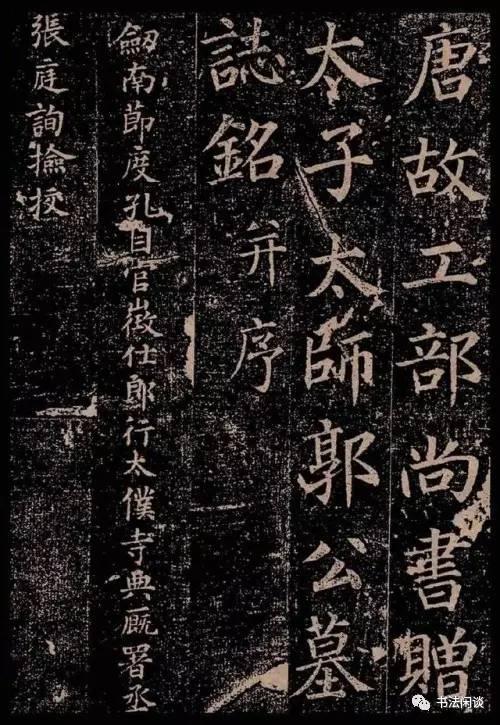 唐故工部尚書贈
太子太師郭公墓
誌銘并序
劒南節度孔目官徵仕郎行太僕寺典廐署丞
張庭詢撿挍
书法闲谈